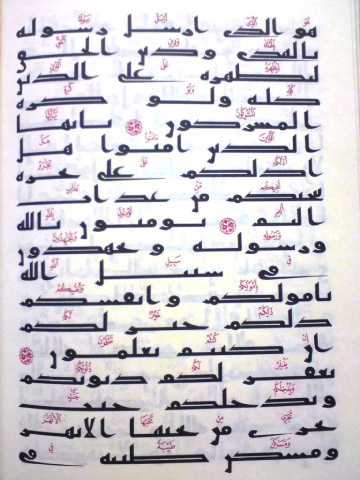 هو الذى ارسل رسوله
بالهدى ودين الحق
ليظهره على الدين
كله ولو كره
المشركون يايها
الذين امنوا هل
ادلكم على تجرة
تنجيكم من عذاب
اليم تومنون بالله
ورسوله وتجهدون
فى سبيل الله
باموالكم وانفسكم
ذلكم خير لكم
ان كنتم تعلمون
يغفر لكم ذنوبكم
ويدخلكم جنت
تجرى من تحتها الانهر
ومسكن طيبة فى